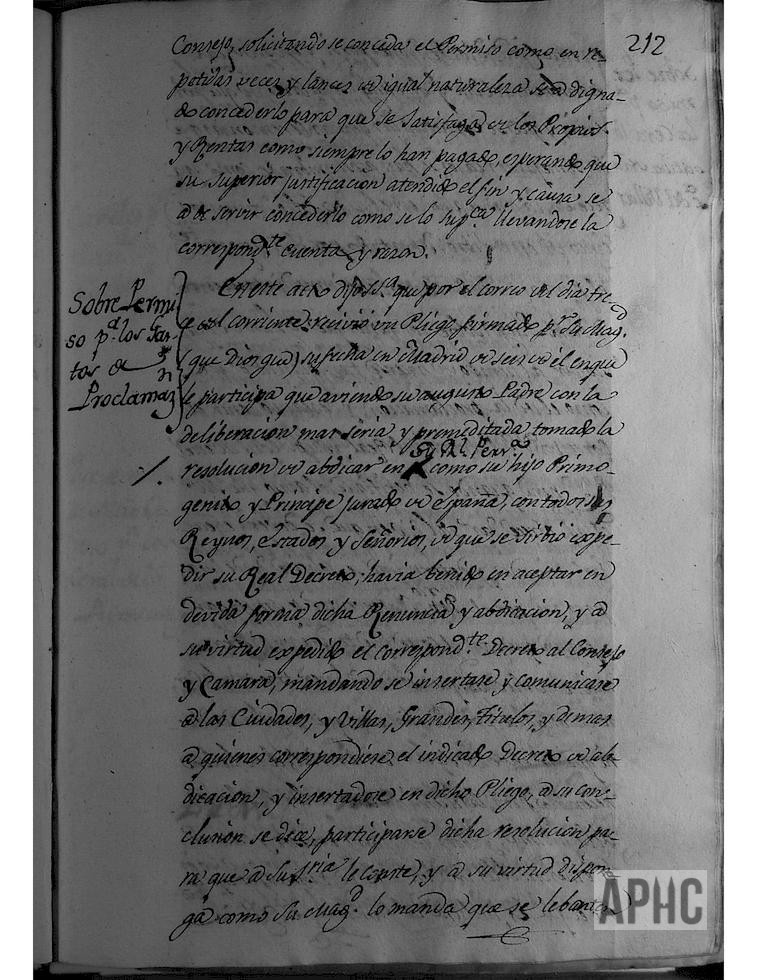 212
Consejo, solicitando se conceda el Permiso como en re-
petidas veces, y lances de igual naturaleza se a digna-
do concederlo para que se satisfaga de los Propios
y Rentas como siempre lo han pagado, esperando que
su superior justificacion atendido el fin y causa se
a de servir concederlo como se lo sup.ca llevandose la
correspond.te cuenta y razon.
Sobre Permi-
so p.a los Gas-
tos de
Proclamaz.n
En este acto dijo S.S.a que por el correo del dia tre-
ce del corriente recivió un Pliego, firmado p.r Su Mag.d
(que Dios gue) su fecha en Madrid de seis de él en que
le participa que aviendo su augusto Padre con la
deliberacion mas seria y premeditada tomado la
resolucion de abdicar en su R.l Pers.a como su hijo Primo-
genito y Principe jurado de España, con todos sus
Reynos, estados y señorios, de que se sirbio expe-
dir su Real Decreto, havia benido en aceptar en
devida forma dicha Renuncia y abdicacion, y a
su virtud expedido el correspond.te Decreto al Consejo
y Camara, mandando se insertase y comunicase
a las Ciudades, y Villas, Grandes, Titulos, y demas
a quienes correspondiese el indicado Decreto de ab-
dicacion, y insertadose en dicho Pliego, a su con-
clusion se dice, participarse dicha resolucion pa-
ra que a Su S.ria le conste, y a su virtud dispon-
ga como Su Mag.d lo manda que se lebanten
APHC